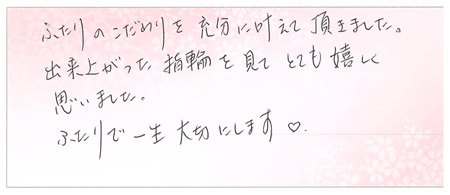 ふたりのこだわりを充分に叶えて頂きました。
出来上がった指輪を見てとても嬉しく
思いました。
ふたりで一生大切にします♡.